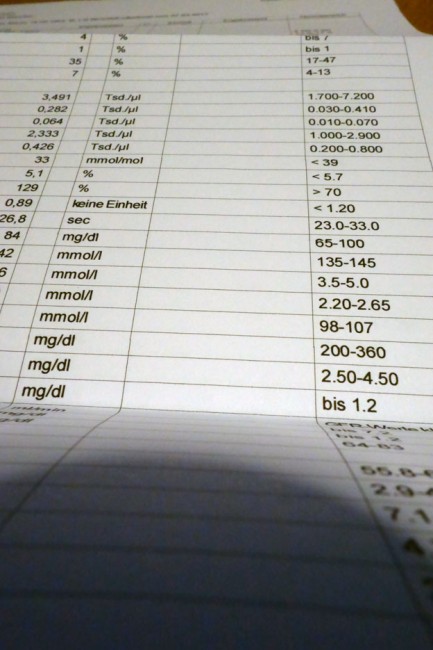 4 % bis 7
1 % bis 1
35 % 17-47
7 % 4-13
3,491 Tsd./µl 1.700-7.200
0,282 Tsd./µl 0.030-0.410
0,064 Tsd./µl 0.010-0.070
2,333 Tsd./µl 1.000-2.900
0,426 Tsd./µl 0.200-0.800
33 mmol/mol < 39
5,1 % < 5.7
129 % > 70
0,89 keine Einheit < 1.20
26,8 sec 23.0-33.0
84 mg/dl 65-100
42 mmol/l 135-145
6 mmol/l 3.5-5.0
mmol/l 2.20-2.65
mmol/l 98-107
mg/dl 200-360
mg/dl 2.50-4.50
mg/dl bis 1.2
bis 1.2